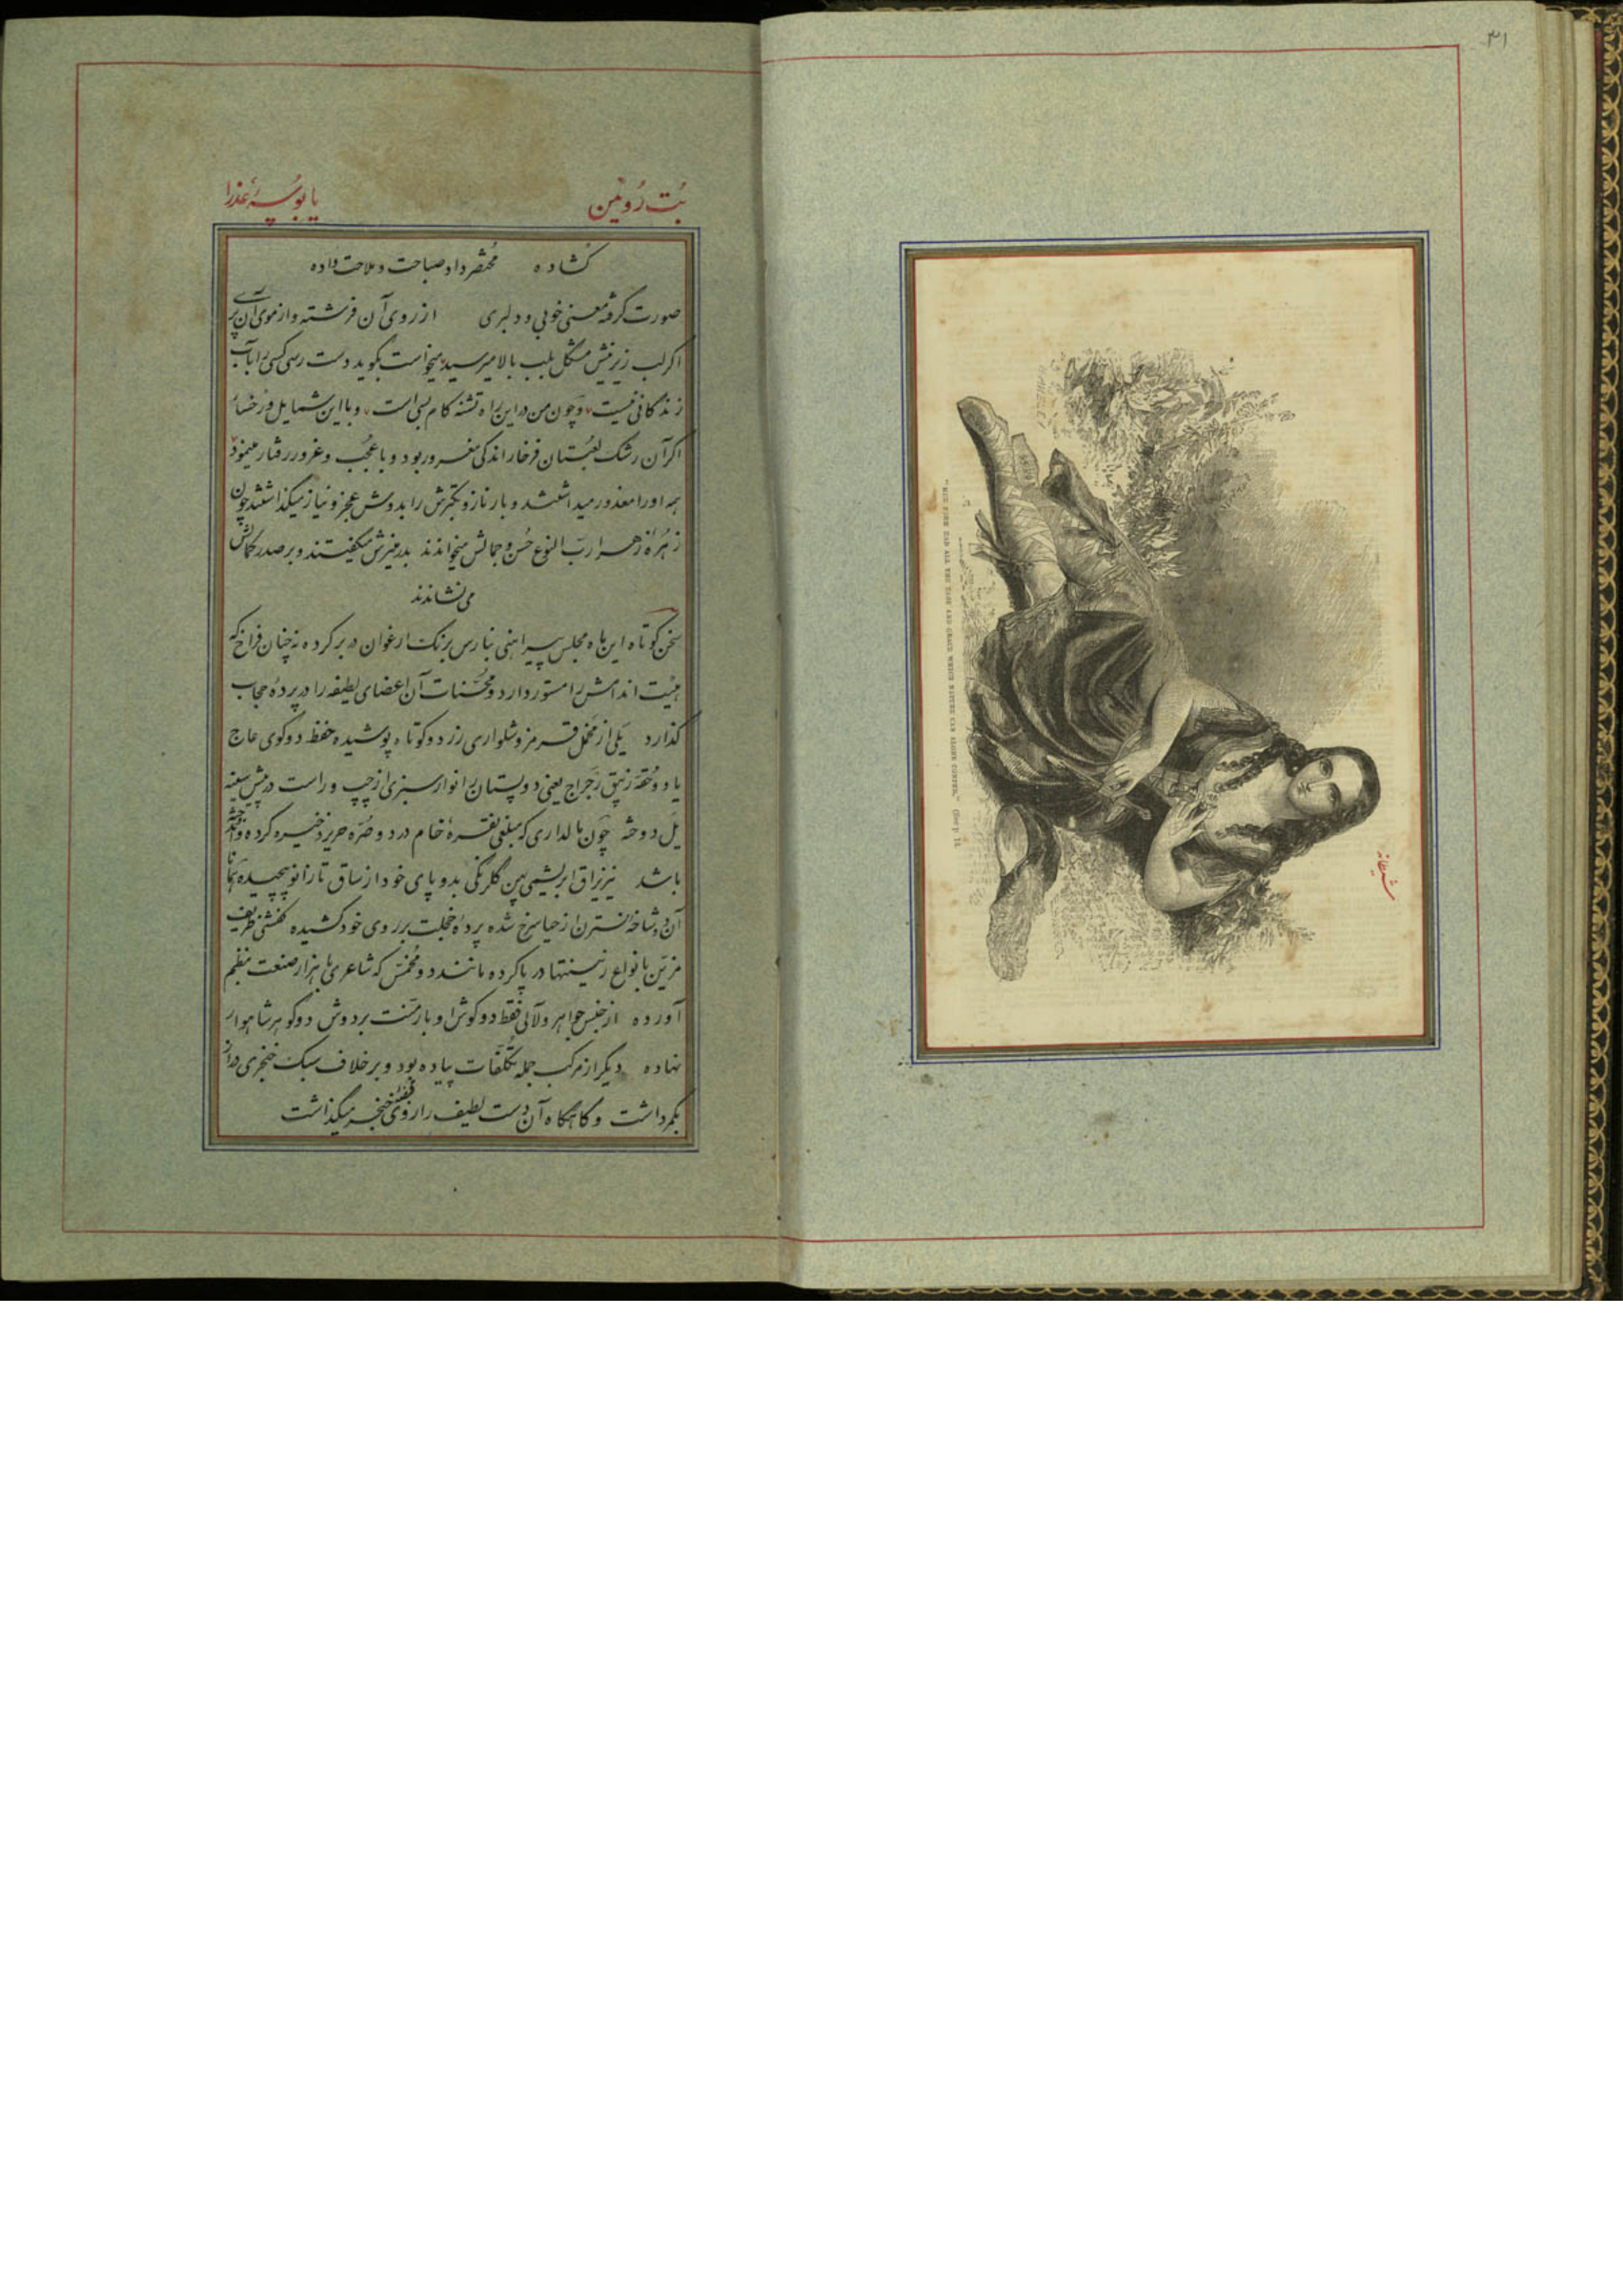 ۳۱
شمخانه
"HER FORM HAD ALL THE EASE AND GRACE WHICH NATURE CAN ALONE CONFER." (See p. 14
بُت رُوئین یا بوسهٔ عذرا
گشاده مختصر داد صباحت و ملاحت داده
صورت گرفته معنی خوبی و دلبری از روی آن فرشته و از موی آن پری
اگر لب زیرینش مشکل بلب بالا میرسید میخواست بگوید دست رسی کسی را بآب
زندگانی نیست و چون من در این راه تشنه کام بسی است و با این شمایل و رخسار
اگر آن رشک لعبتان فرخار اندکی مغرور بود و با عُجب و غرور رفتار مینمود
همه او را معذور میداشتند و بار ناز و تکبرش را بدوش عجز و نیاز میگذاشتند چون
زهرهٔ زهرا ربّ النوع حُسن و جمالش میخواندند بدر منیرش میگفتند و بر صدر کمالش
می نشاندند
سخن کوتاه این ماه مجلس پیراهنی بنارس برنک ارغوان در بر کرده نه چنان فراخ که
هیئت اندامش را مستور دارد و محسّنات آن اعضای لطیفه را در پردهٔ حجاب
گذارد یَلی از مخمل قرمز و شلواری زرد و کوتاه پوشیده حفظ دو گوی عاج
یا دو حُقّه زیبق رَجراج یعنی دو پستان را نوار سبزی از چپ و راست در پیش سینه
یَل دوخته چون مالداری که مبلغی نقرهٔ خام در دو صُرّه حریر ذخیره کرده و اندوخته
باشد نیز یراق ابریشمی پهن گلرنگی بدو پای خود از ساق تا زانو پیچیده همانا
آن دو شاخه نسترن از حیا سرخ شده پردهٔ خجلت بر روی خود کشیده کفشی ظریف
مزیّن بانواع زینتها در پا کرده مانند دو مُخمّس که شاعری با هزار صنعت بنظم
آورده از جنس جواهر و لآلی فقط دو گوشرا و بار منّت بر دوش دو گوهر شاهوار
نهاده دیگر از مرکب جمله تکلّفات پیاده بود و بر خلاف سبک خنجری دراز
بکمر داشت و گاهگاه آن دست لطیف را روی قبضهٔ خنجر میگذاشت